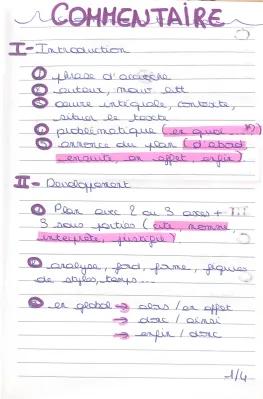 COMMENTAIRE
I- Introduction
① phrase d'accroche
② auteur, mouv. litt
③ oeuvre intégrale, contexte,
situer le texte
④ problématique (en quoi ... ?)
⑤ annonce du plan (d'abord
ensuite, en effet, enfin)
II- Développement
① Plan avec 2 ou 3 axes + III
3 sous parties (cite, nomme,
interprète, justifie)
② analyse, fond, forme, figures
de styles, temps...
③ en global → alors / en effet
→ donc / ainsi
→ enfin / donc
1/4